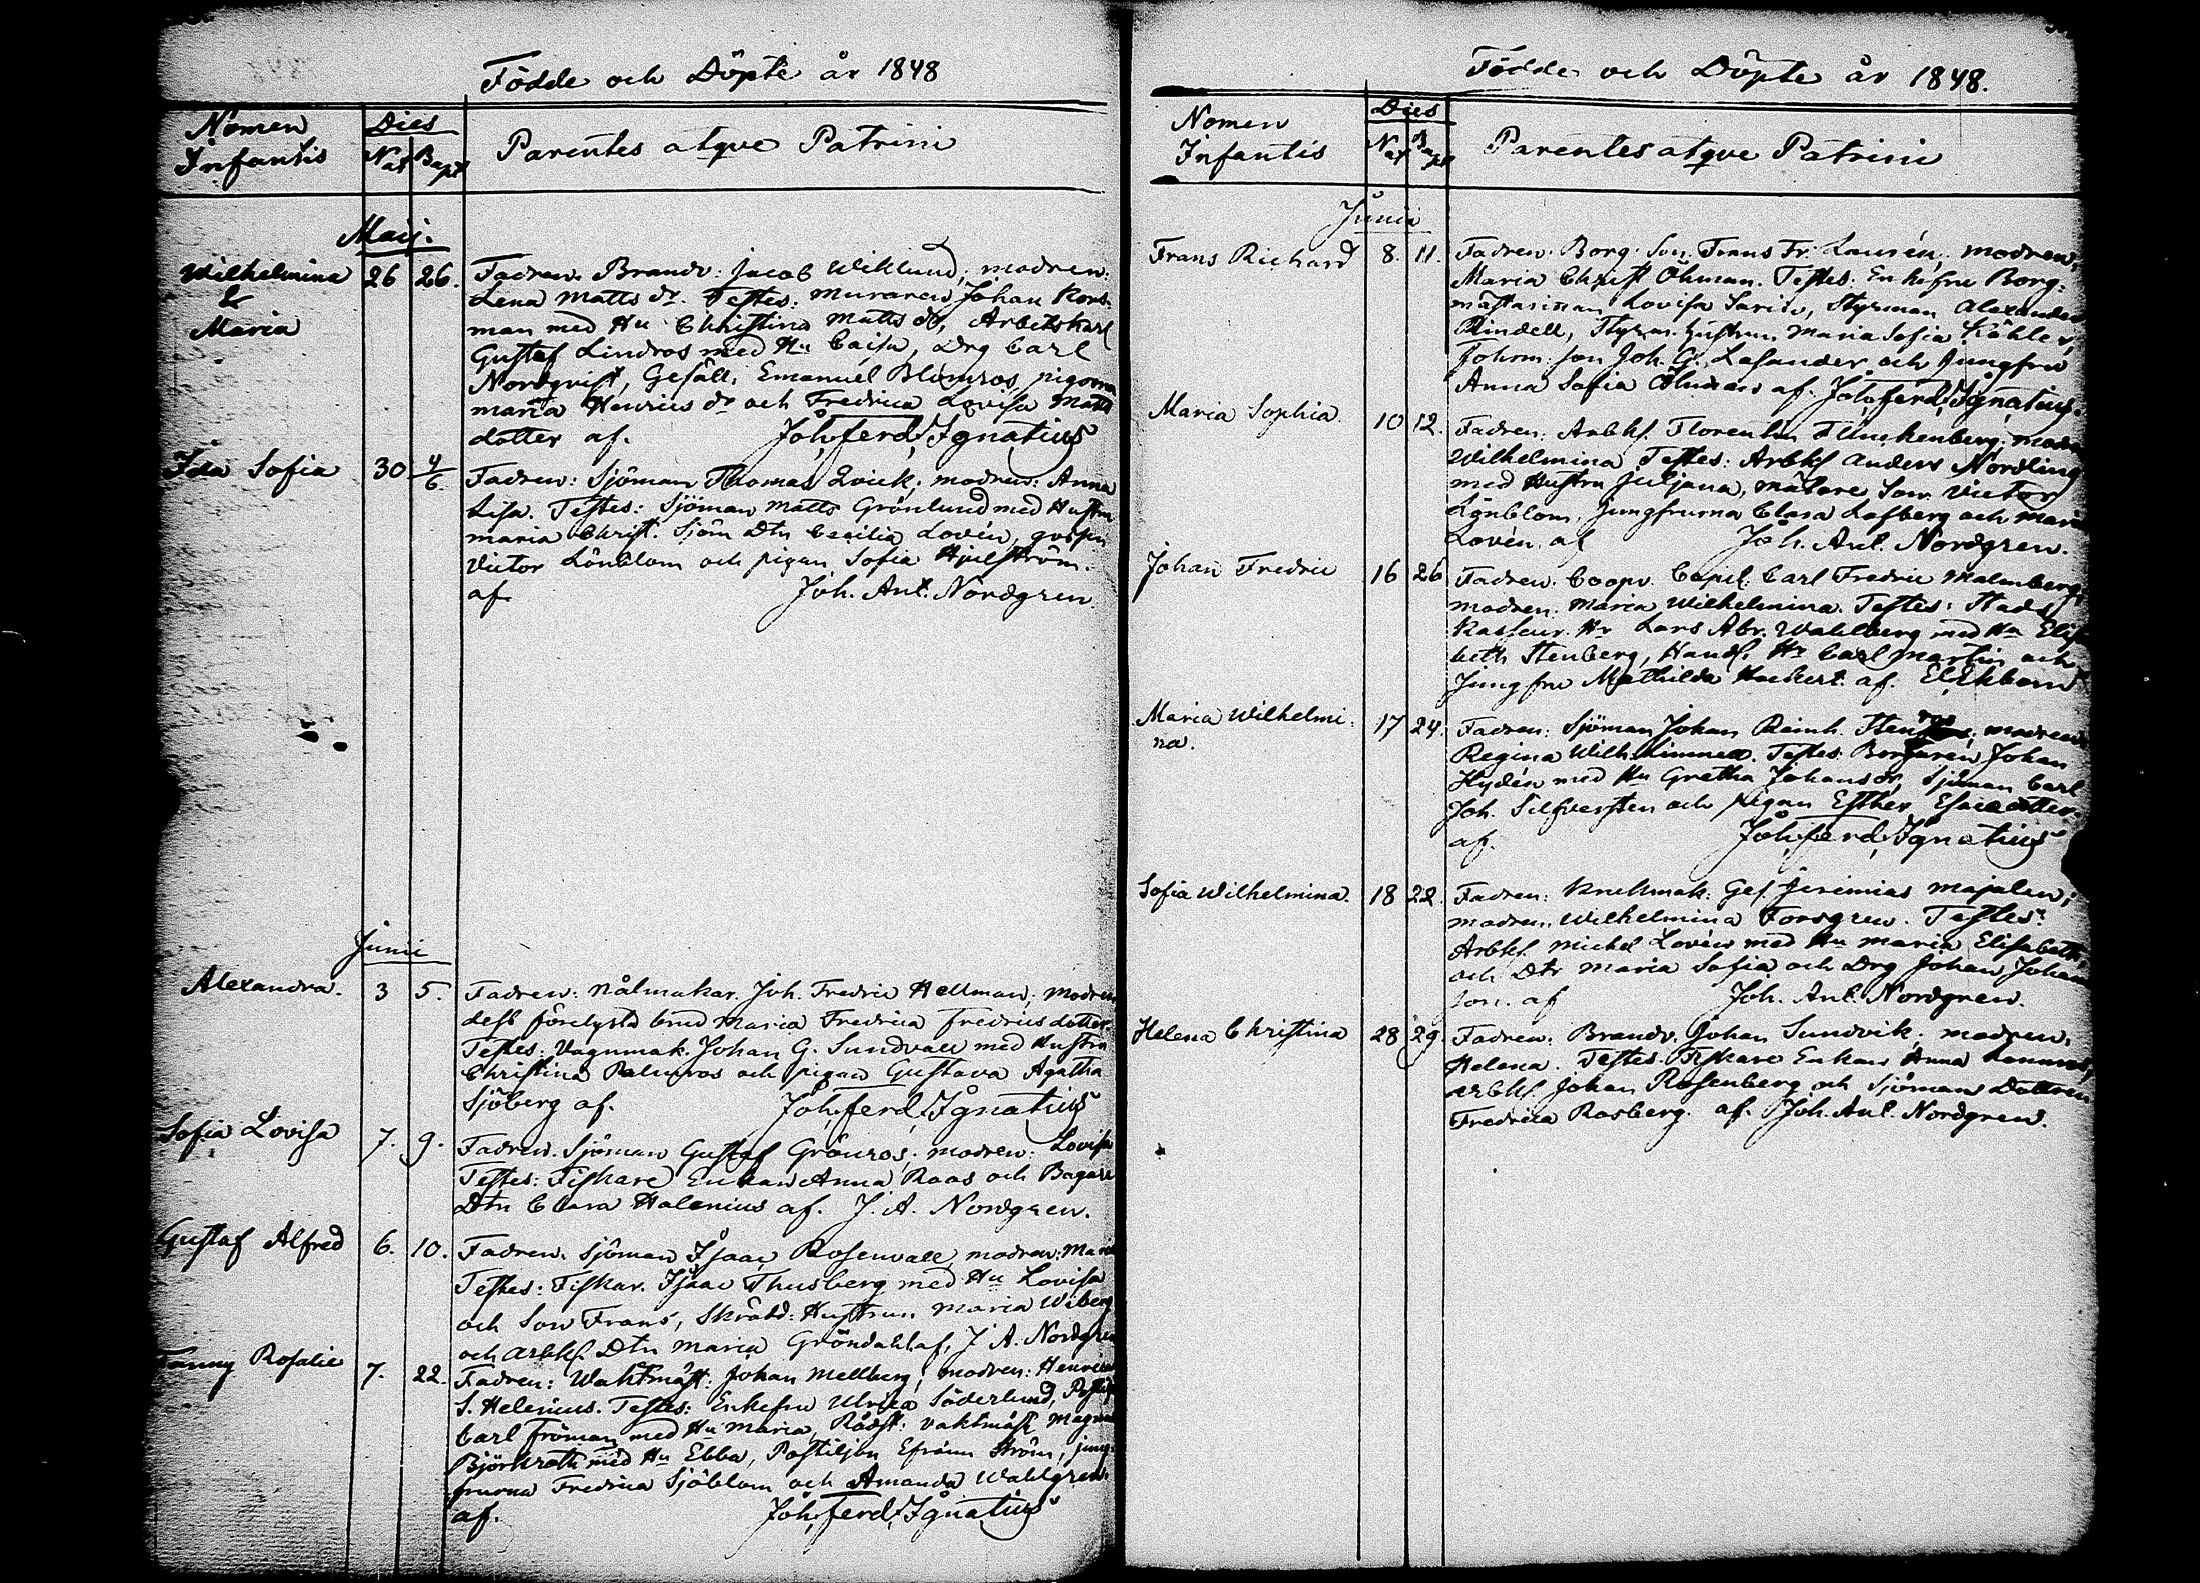 Födde och Döpte år 1848
Nomen Infantis
Dies
Nat Bapt
Parentes atque Patrini
Maij.
Wilhelmina & Maria 26 26.
Fadren: Brandv: Jacob Wiklund; modren:
Lena Matts dr. Testes: Muraren Johan Nors-
man med Hu Christina Matts dr, Arbetskarl
Gustaf Lindros med Hu Caisa, Drg Carl
Nordqvist, Gesäll. Emanuel Blomros, pigorna
Maria Henrics dr och Fredrica Lovisa Matts
dotter af. Joh. Ferd. Ignatius
Ida Sofia 30 4/6.
Fadren: Sjöman Thomas Qvick; modren: Anna
Lisa. Testes: Sjöman Matts Grönlund med Hustru
Maria Christ. Sjöm Dtn Cecilia Lovén, gossen
Victor Lönblom och pigan Sofia Hjelström.
af Joh. Ant. Nordgren.
Junii
Alexandra. 3 5.
Fadren: Nålmakar. Joh. Fredric Hellman; Modren
dess förelysta brud Maria Fredrica Fredricsdotter.
Testes: Vagnmak. Johan G. Sundvall med Hustru
Christina Palmros och pigan Gustava Agatha
Sjöberg af. Joh. Ferd. Ignatius
Sofia Lovisa 7. 9.
Fadren. Sjöman Gustaf Grönros; modren: Lovisa
Testes: Fiskare Enkan Anna Raas och Bagare
Dtn Clara Halenius af. J. A. Nordgren.
Gustaf Alfred 6. 10.
Fadren. Sjöman Isaac Rosenvall, modren: Maria
Testes: Fiskar. Isaac Thusberg med Hu Lovisa
och Son Frans, Skrädd: Hustrun Maria Wiberg
och Arbks Dtn Maria Gröndahl af. J. A. Nordgren
Fanny Rosalie 7. 22.
Fadren: Waktmäst: Johan Mellberg; modren: Henrica
S. Helenius. Testes: Enkefru Ulrica Söderlund,
Carl Fröman med Hu Maria, Rådst. vaktmäst Magnus
Björkroth med Hu Ebba, Postiljon Efraim Ström, jung-
frurna Fredrica Sjöblom och Amanda Wahlgren.
af. Joh. Ferd. Ignatius
Födde och Döpte år 1848.
Nomen Infantis
Dies
Nat Bapt
Parentes atque Patrini
Junii
Frans Richard 8. 11.
Fadren: Borg. Son Frans Fr. Laurén; modren,
Maria Christ Öhman. Testes: Enkefru Borg-
mästarinnan Lovisa Sarin, Styrman Alexander
Rindell, Styrm. hustrun Maria Sofia Köhler,
son Joh. G. Lasander och Jungfru
Anna Sofia Öhman af. Joh. Ferd. Ignatius.
Maria Sophia. 10 12.
Fadren: Arbks. Florentin Flinckenberg; modr
Wilhelmina Testes: Arbks Anders Nordling
med Hustru Juljana, Målare Son Victor
Lönblom, Jungfrurna Clara Lofberg och Maria
Lovén, af Joh. Ant. Nordgren.
Johan Fredric 16 26
Fadren. Coopv. Capit. Carl Fredric Malmberg;
modren. Maria Wilhelmina. Testes: Stads
Kasseur. Hr Lars Abr. Wahlberg med Hu Elisa
beth Stenberg, Handl. Hr Carl Martin och
Jungfru Mathilda Heckert. af. E. Ekbom
Maria Wilhelmi-
na. 17 24.
Fadren: Sjöman Johan Reinh. modren
Regina Wilh. Limnell. Testes. Borgaren Johan
Hydén med Hu Gretha Johans dr, Sjöman Carl
Joh. Silfversten och pigan Esther Esaiædotter.
af. Joh. Ferd. Ignatius
Sofia Wilhelmina. 18 22.
Fadren: Krukmak: Ges. Jeremias Majalen;
modren. Wilhelmina Forsgren. Testes:
Arbks. Michel Lovén med Hu Maria Elisabeth,
och Dtr Maria Sofia och Drg Johan Johan
son. af Joh. Ant. Nordgren.
Helena Christina 28 29.
Fadren: Brandv. Johan Sundvik; modren.
Helena. Testes. Fiskare Enkan Anna
arbks Johan Rosenberg och Sjöman Dottren
Fredrica Rosberg. af. Joh. Ant. Nordgren.